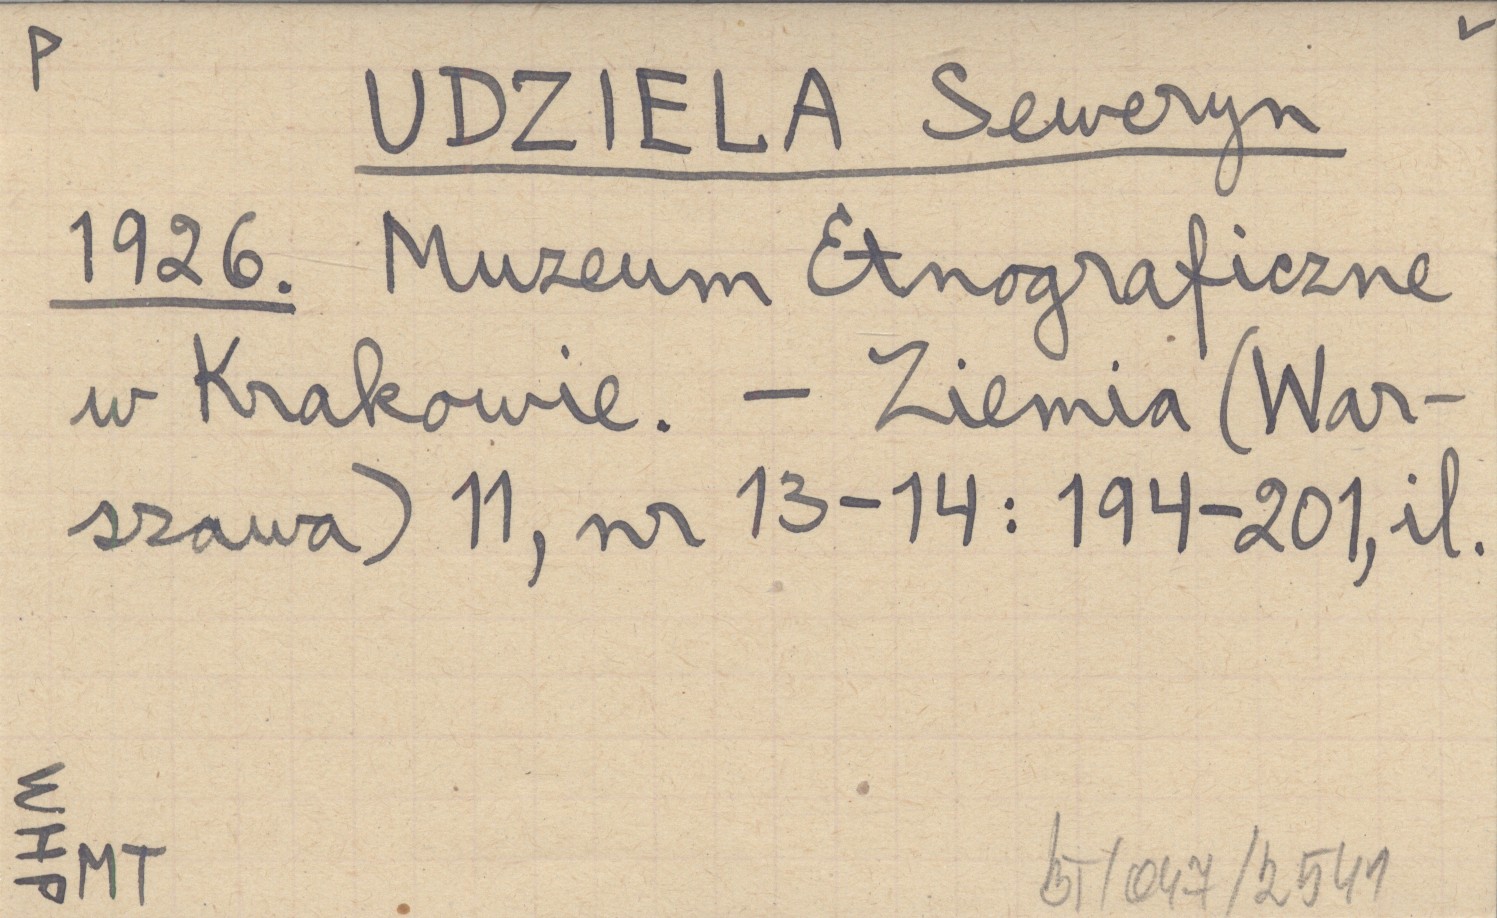 P
UDZIELA Seweryn
1926. Muzeum Etnograficzne
w Krakowie. — Ziemia (War-
szawa) 11, nr 13-14: 194-201, il.
WHP
MT
/047/2541